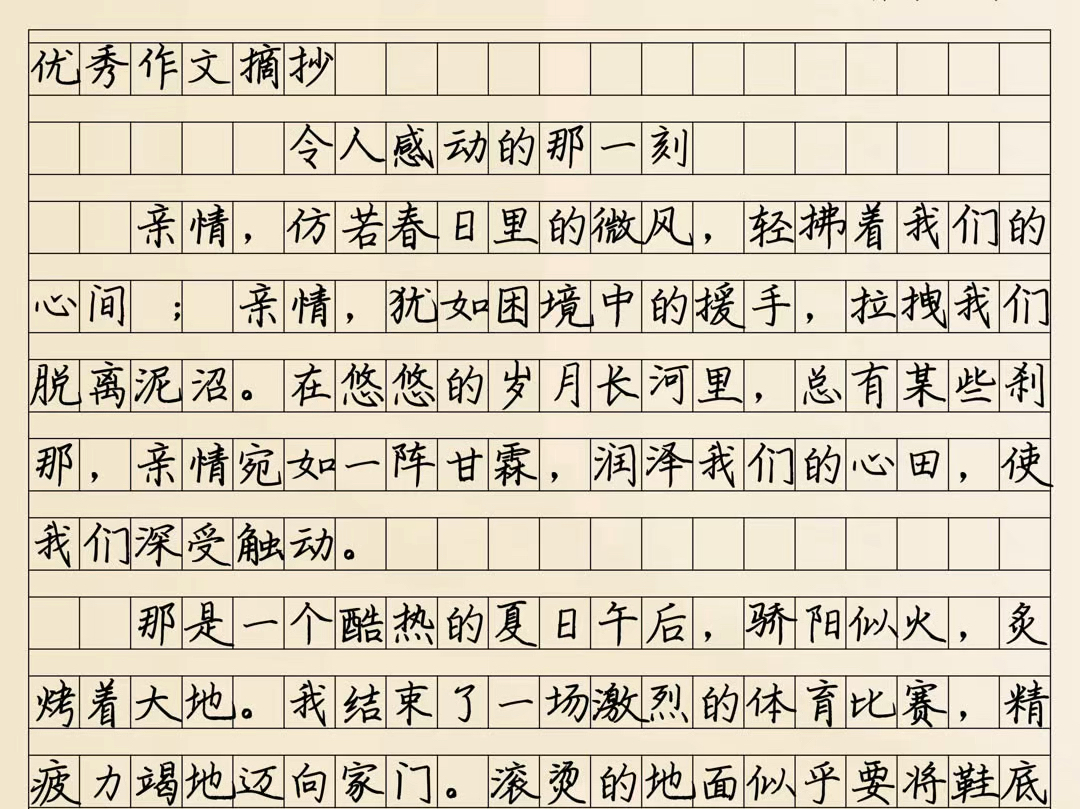 优秀作文摘抄
令人感动的那一刻
亲情，仿若春日里的微风，轻拂着我们的
心间；亲情，犹如困境中的援手，拉拽我们
脱离泥沼。在悠悠的岁月长河里，总有某些刹
那，亲情宛如一阵甘霖，润泽我们的心田，使
我们深受触动。
那是一个酷热的夏日午后，骄阳似火，炙
烤着大地。我结束了一场激烈的体育比赛，精
疲力竭地迈向家门。滚烫的地面似乎要将鞋底